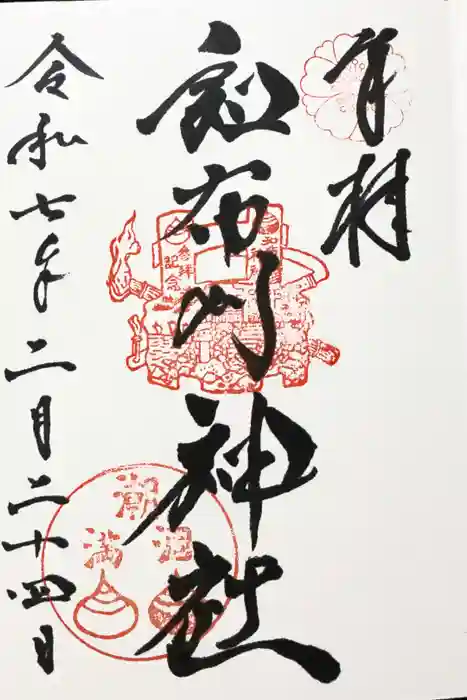 奉拝
和布刈神社
令和七年二月二十四日
参拝
記念
潮
涸
満